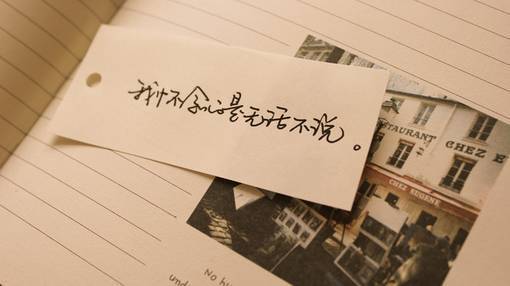 我们不会总是无话不说。
TAURANT CHEZ E
CHEZ EUGENE